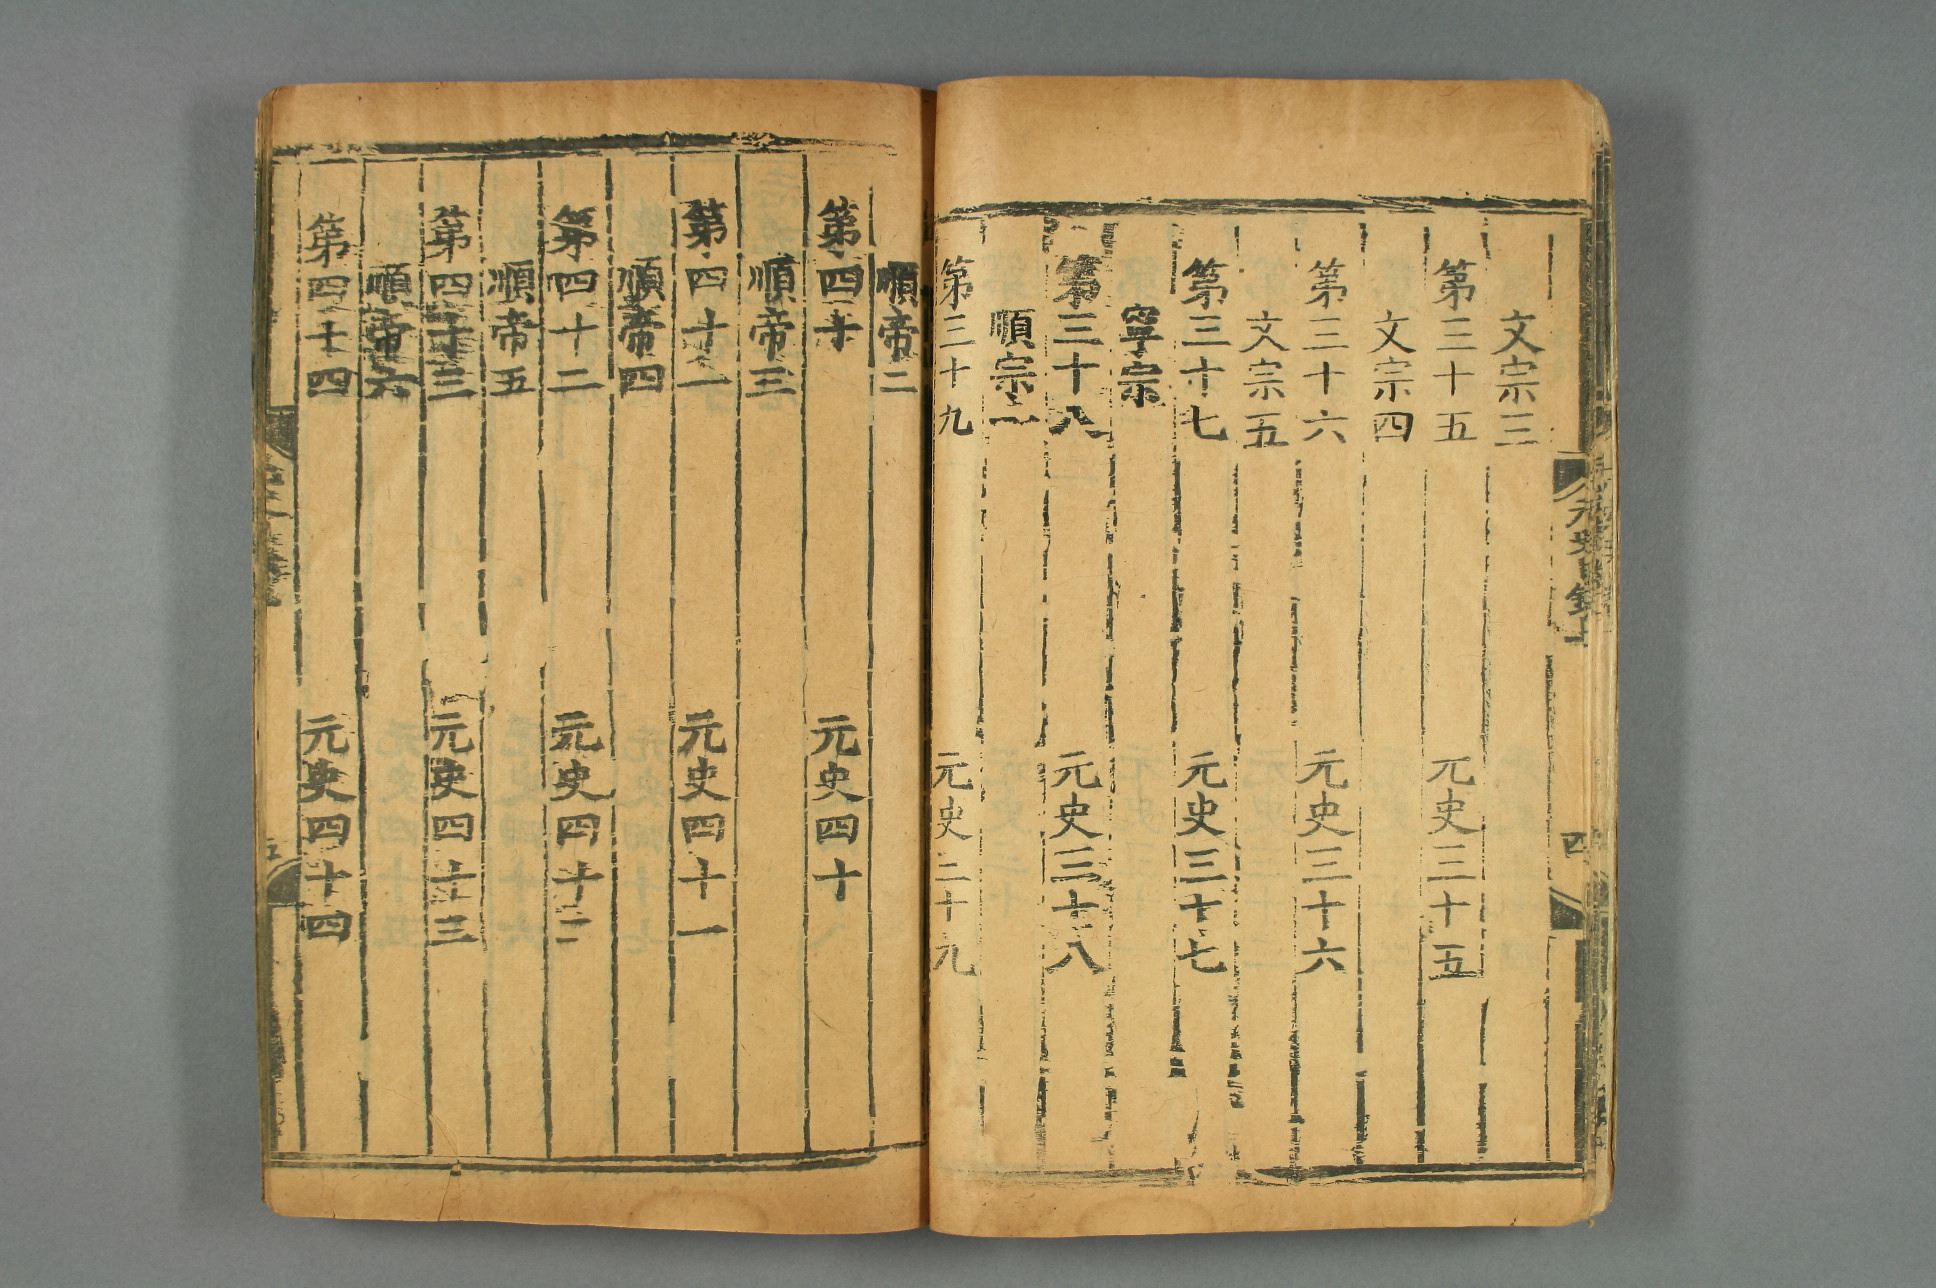 文宗三
第三十五 元史三十五
文宗四
第三十六 元史三十六
文宗五
第三十七 元史三十七
寧宗
第三十八 元史三十八
順宗一
第三十九 元史三十九
順帝二
第四十 元史四十
順帝三
第四十一 元史四十一
順帝四
第四十二 元史四十二
順帝五
第四十三 元史四十三
順帝六
第四十四 元史四十四
元史目錄上
四